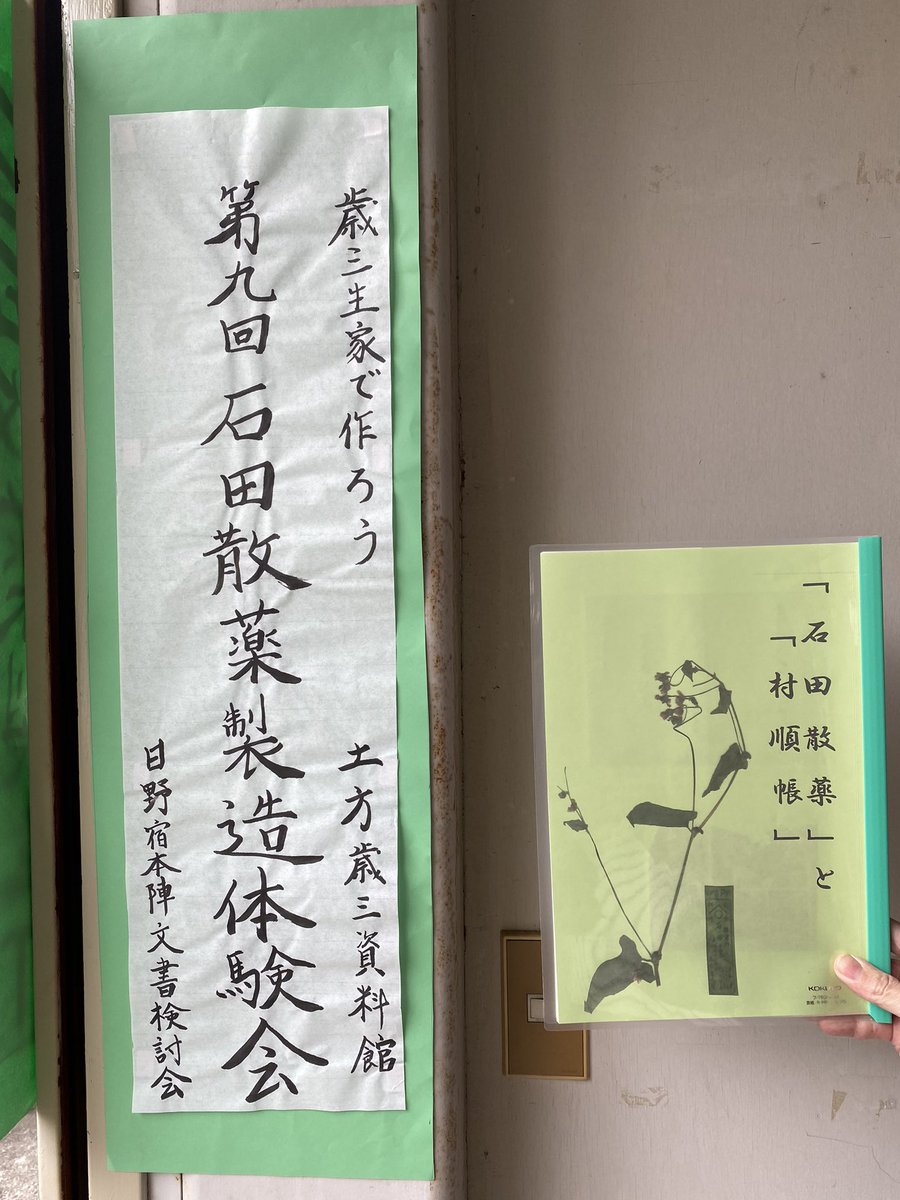 歳三生家で作ろう 土方歳三資料館
第九回 石田散薬製造体験会
日野宿本陣文書検討会
「石田散薬」と
「村順帳」
KOKUYO